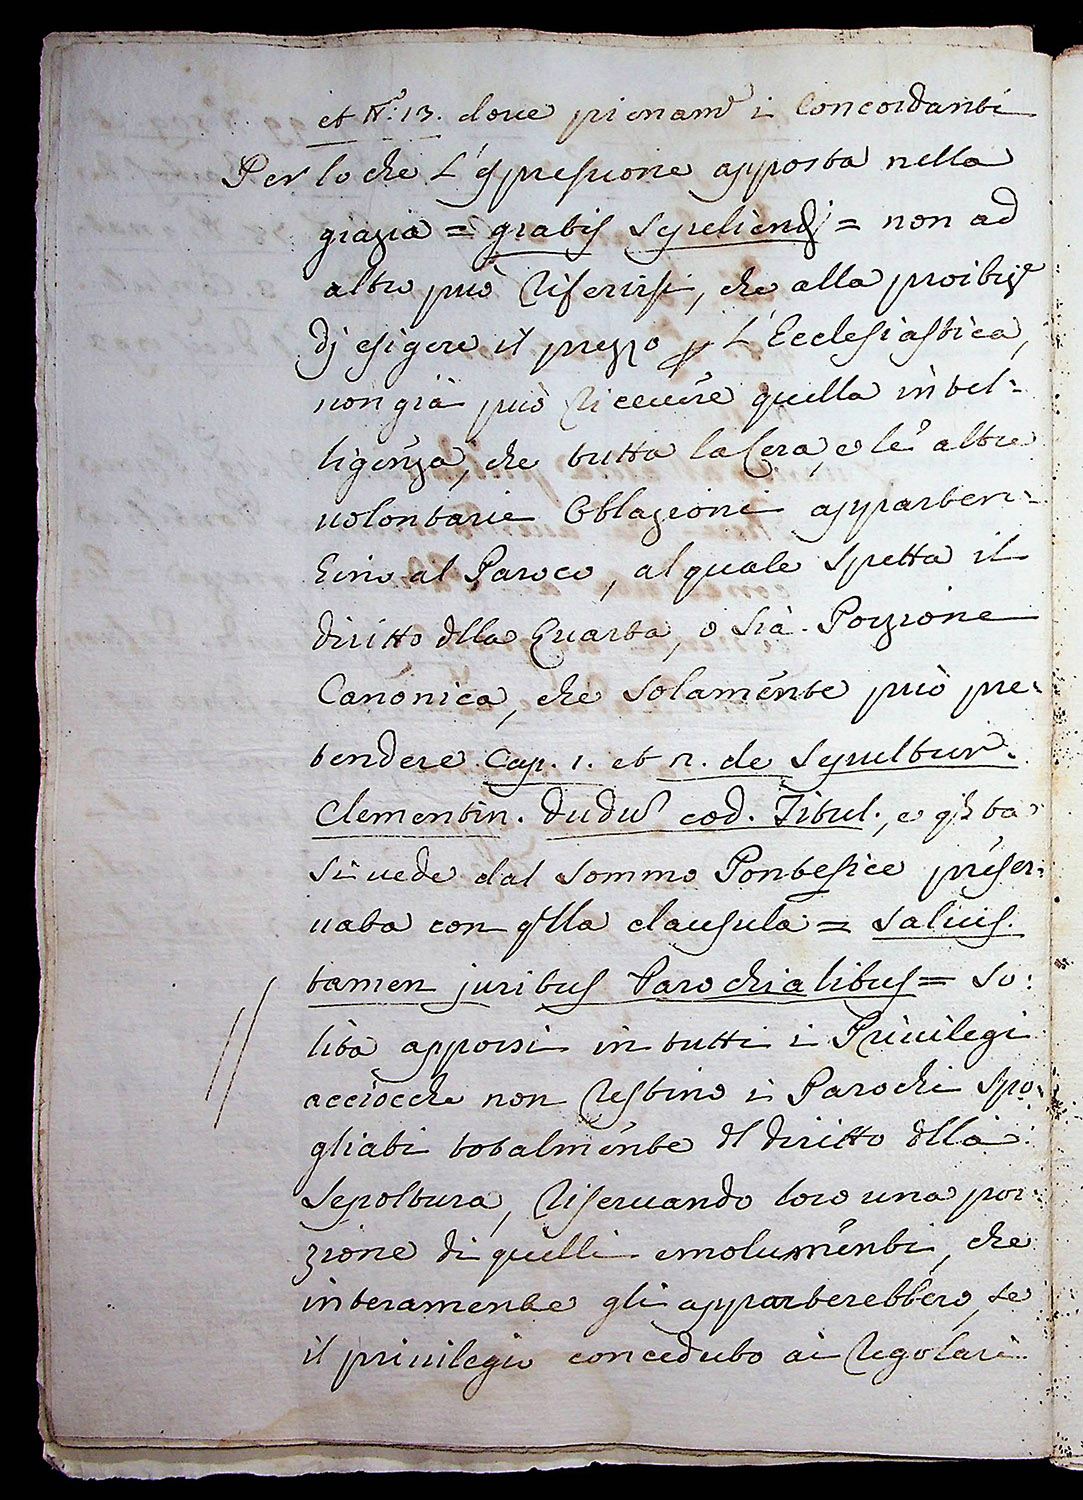 et N.° 13. dove pienam.e i Concordanti
Per lo che L'espressione apposta nella
grazia = gratis sepeliendj = non ad
altro può riferirsi, che alla proibiz.e
dj esigere il prezzo p L'Ecclesiastica,
non già può ricevere quella intel-
ligenza, che tutta la Cera, e le altre
volontarie Oblazioni apparten-
ghino al Paroco, al quale spetta il
diritto dlla Quarta, o sia Porzione
Canonica, che solamente può pre-
tendere Cap. 1. et 2. de Sepultur.
Clementin. dudu eod. Titul., e qsta
si vede dal sommo Pontefice preser-
vata con qlla clausula = salvis.
tamen juribus Parochialibus = so:
lita apporsi in tutti i Privilegi
acciocche non restino i Parochi spo-
gliati totalmente dl diritto dlla
Sepoltura, riservando loro una por-
zione di quelli emolumenti, che
interamente gli apparterebbero, se
il privilegio conceduto ai regolari